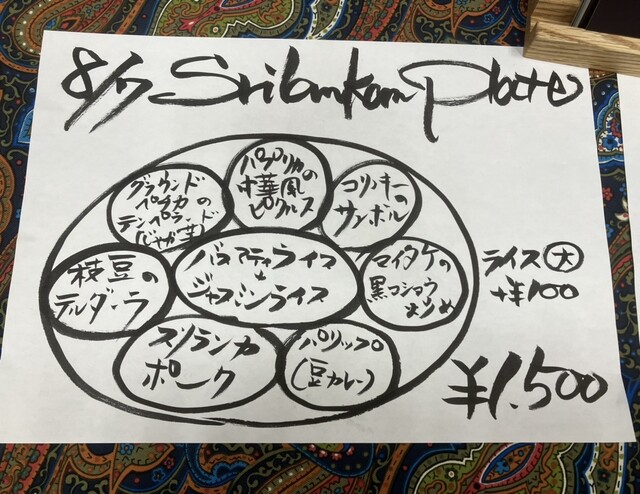 8/7 Srilankan Plate
パプリカの
中華風
ピクルス
グラウンド
ペチカの
デンペラード
(じゃが芋)
コリンキーの
サンボル
枝豆の
テルダーラ
バスマティライス
+
ジャスミンライス
マイタケの
黒コショウ
炒め
スリランカ
ポーク
パリップ
(豆カレー)
ライス大
+¥100
¥1,500